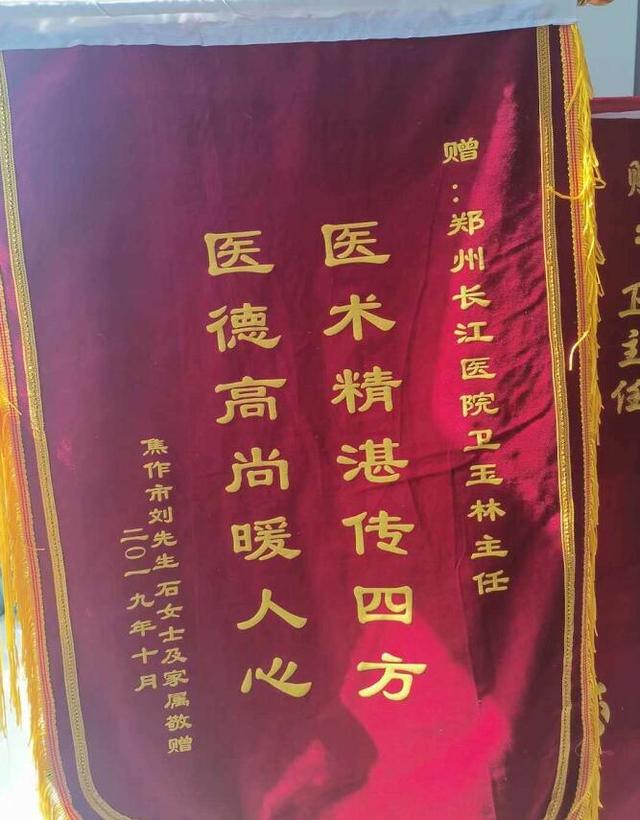 赠：郑州长江医院卫玉林主任
医术精湛传四方
医德高尚暖人心
焦作市刘先生石女士及家属敬赠
二〇一九年十月
卫主任